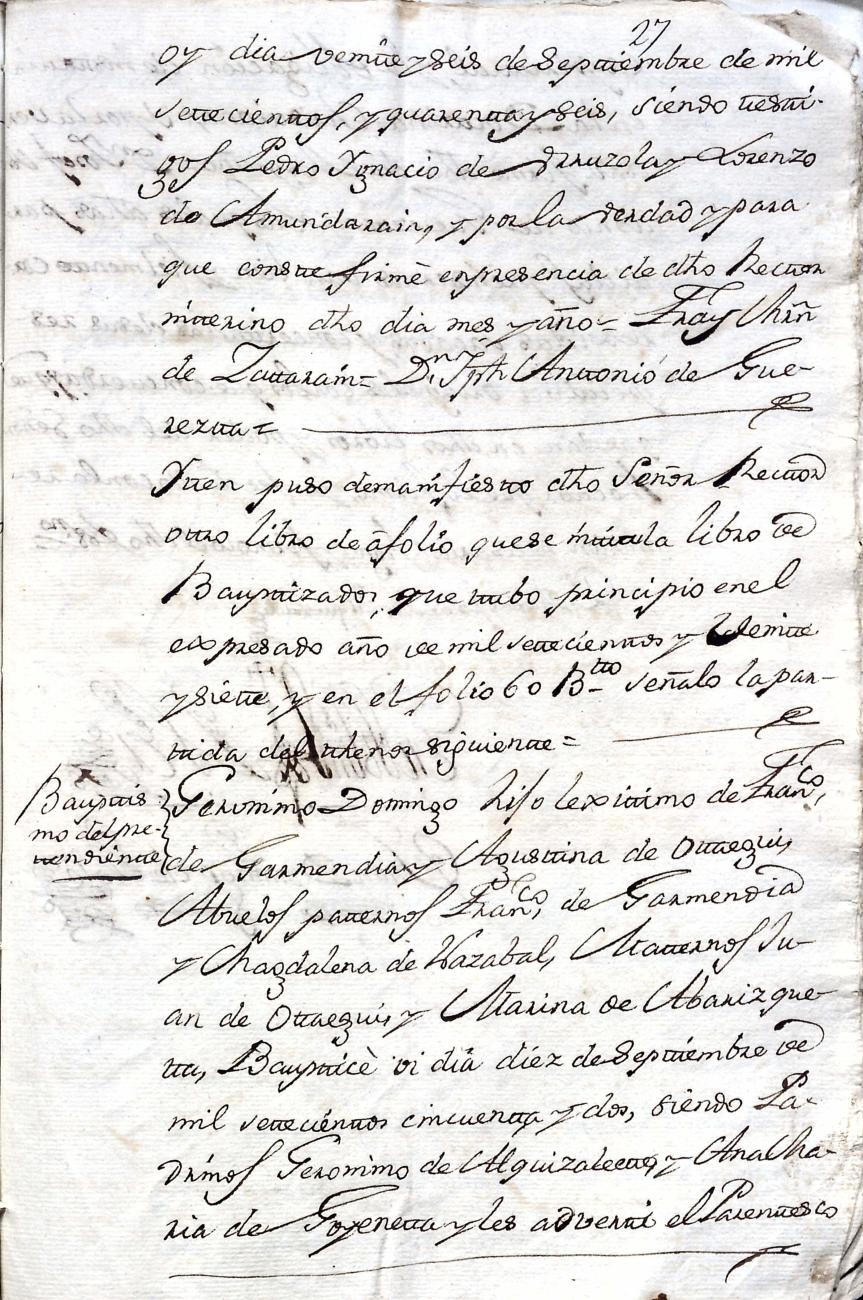 27
oy dia veintte y seis de Septtiembre de mil
settecienttos, y quarentta y seis, siendo ttestti-
gos Pedro Ygnacio de Urruzola y Lorenzo
de Amundarain, y por la verdad y para
que constte firmè en presencia de dtho Recttor
intterino dtho dia mes y año = Fray Chrñ
de Zattarain = Dn. Jph Anttonio de Gue-
reztta =
Ytten puso de manifiestto dtho Señor Recttor
ottro libro de â folio que se inttittula libro de
Bapttizados, que ttubo principio en el
expresado año de mil settecienttos y Veintte
y siette, y en el folio 60 Btto señalo la par-
ttida del tthenor siguientte =
Bapttis-
mo del pre-
ttendientte
Geronimo Domingo hijo lexittimo de Franco,
de Garmendia y Agusttina de Ottaegui,
Abuelos patternos Franco, de Garmendia
y Magdalena de Yazabal, Matternos Ju-
an de Ottaegui, y Marina de Abarizque-
tta, Baptticè oi dia diez de Septtiembre de
mil settecienttos cincuentta y dos, siendo Pa-
drinos Geronimo de Alquizalette, y Ana Ma-
ria de Goyenetta y les advertti el Parenttesco